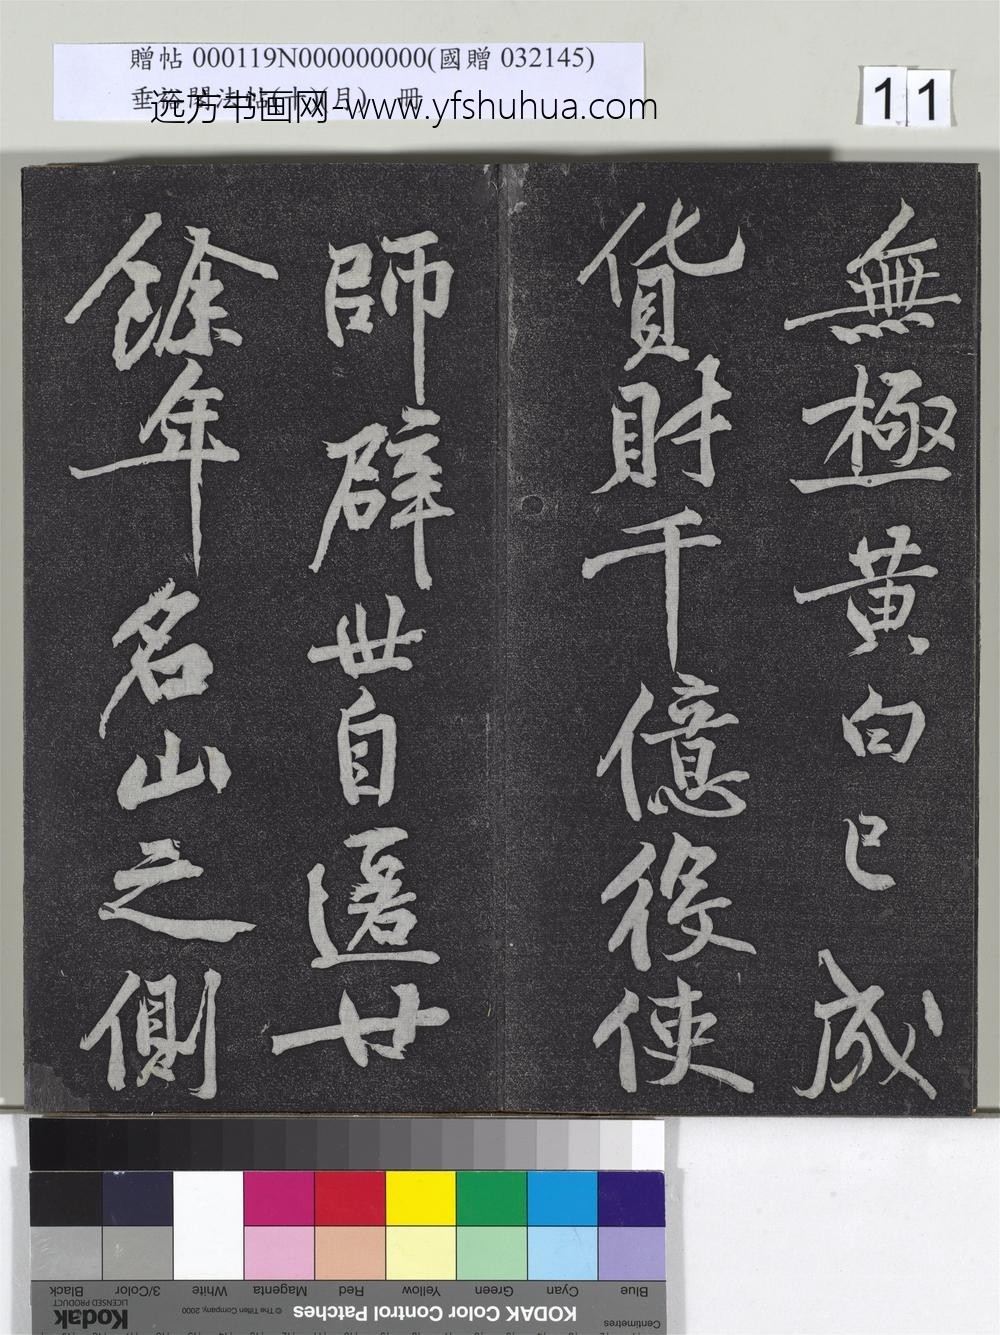 贈帖 000119N000000000(國贈 032145)
远方书画网-www.yfshuhua.com
11
無極黃白已成
貨財千億役使
師辟世自匿廿
餘年名山之側
Blue Cyan Green Yellow Red Magenta White 3/Color Black
KODAK Color Control Patches
© The Tiffen Company, 2000
Kodak
LICENSED PRODUCT
Centimetres